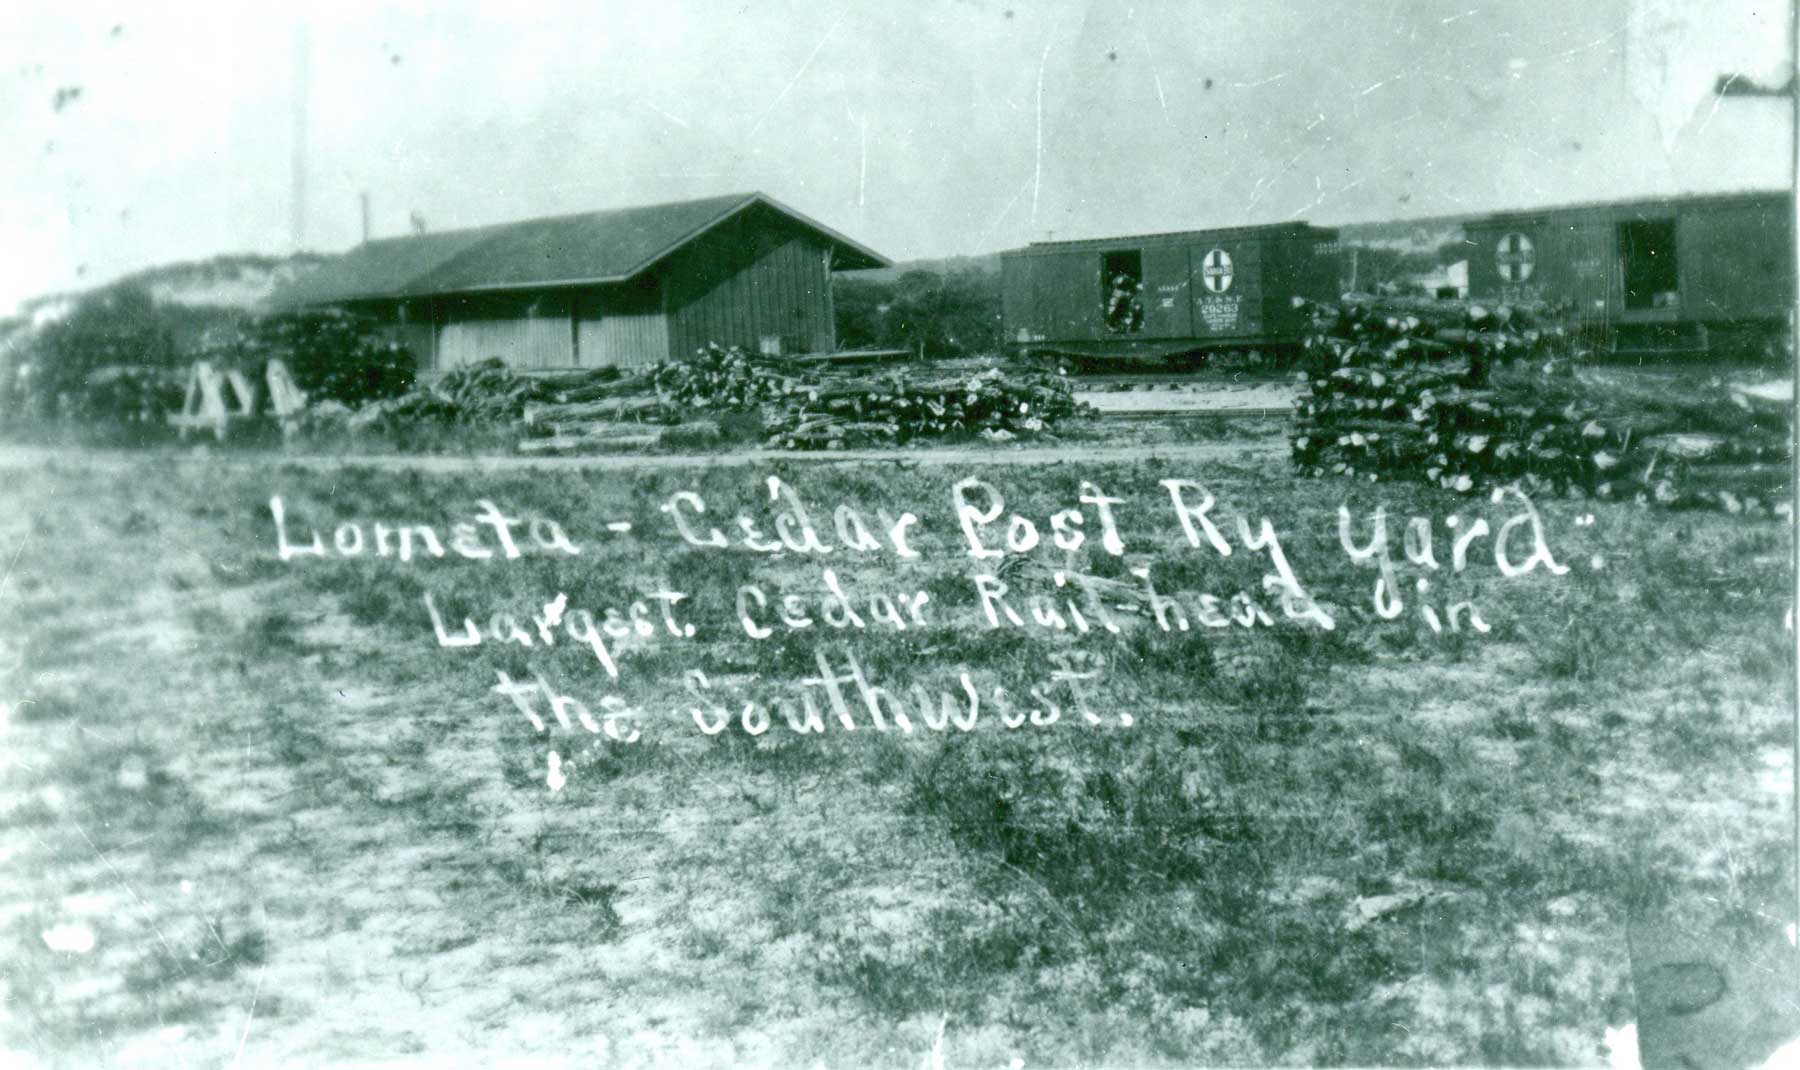 Santa Fe
A.T. & S.F.
29263
Lometa - Cedar Post Ry Yard".
Largest Cedar Rail-head in
the Southwest.